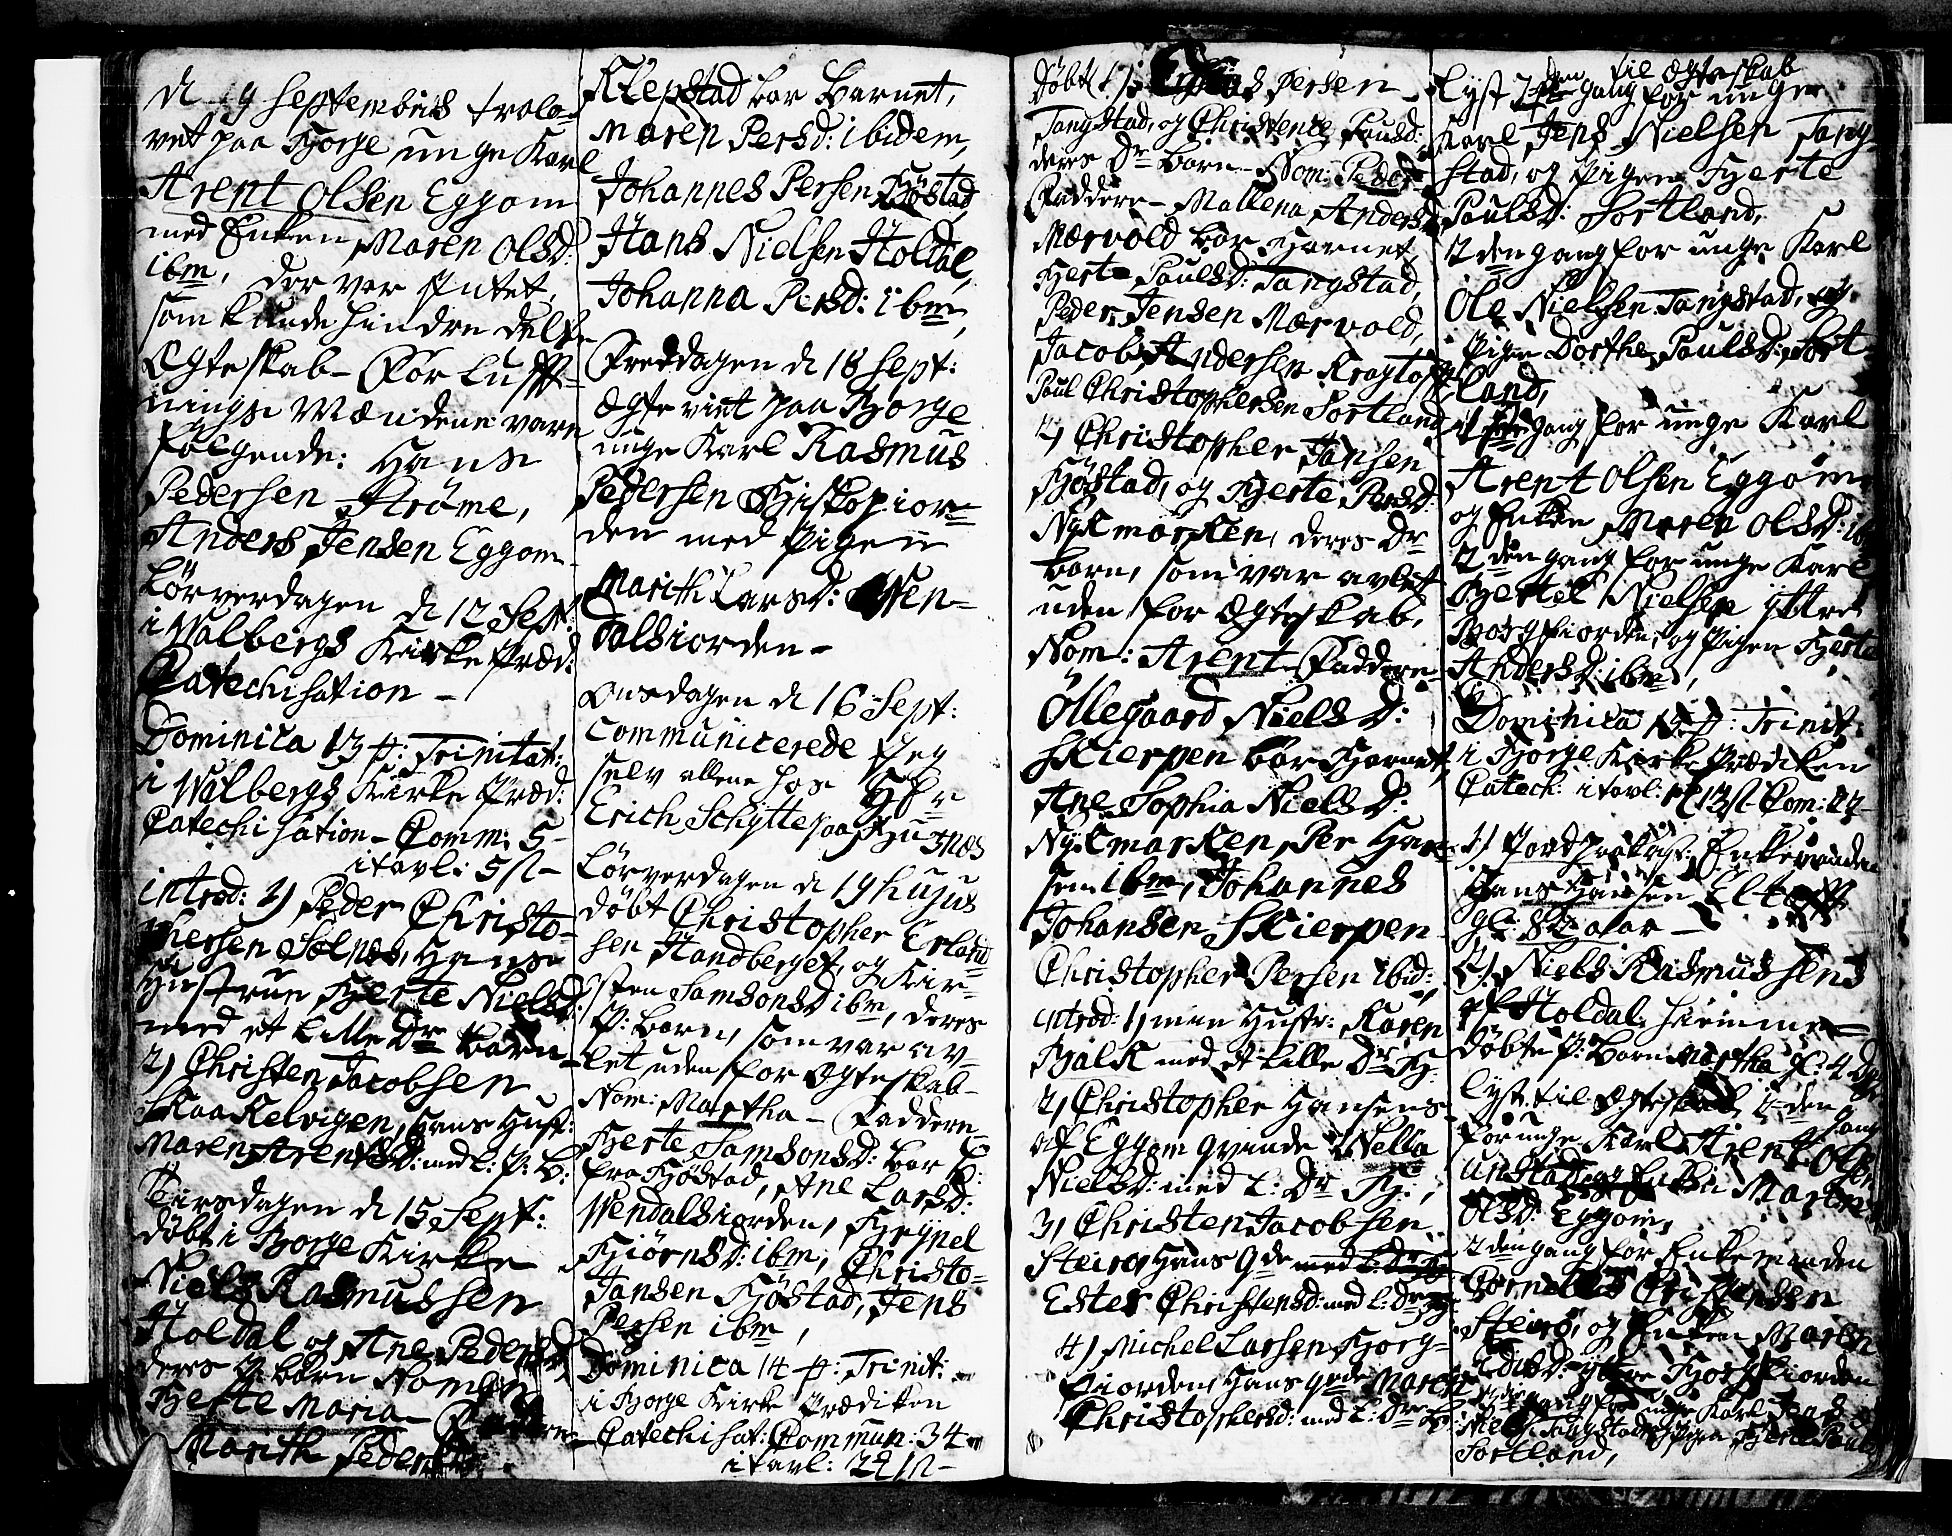 d 9 Septembris trolo-
vet paa Borge unge Karl
Arent Olsen Eggom
med Enken Maren Olsd:
ibm, der var Intet,
som kunde hindre dette
Ægteskab - For
Mændene vare
følgende: Hans
Pedersen Strøme,
Anders Jensen Eggom
Løverdagen d 12 Sept:
i Walbergs Kirke Præd:
Catechisation -
Dominica 13 p: Trinitat:
i Walbergs Kirke Præd:
Catechisation - Comm: 5
itavl: 5
introd: 1) Peder Christo-
phersen Solnæs, Hans
Hustrue Kjerte Nielsd:
med et lille Dr barn
2) Christen Jacobsen
Skaakelvigen, hans Hust:
Maren Arentsd: med l: P: B:
Tirsdagen d 15 Sept:
døbt i Borge Kirke
Niels Rasmussen
Holdal og Ane Pedersd
deres P: barn Nomen
Kjerte Maria
Marith Peders
Klepstad bar Barnet,
Maren Persd: ibidem,
Johannes Persen Kjøstad
Hans Nielsen Holdal,
Johanna Persd: ibm,
Freddagen d 18 Sept:
Ægte viet paa Borge
unge Karl Rasmus
Pedersen
den med Pigen
Marith Larsd: Wen-
dalsiorden -
Onsdagen d 16 Sept:
communicerede Jeg
selv allene hos Hr
Erich Schytte paa Buxnæs
Løverdagen d 19 Hujus
døbt Christopher Erland
sen Handberget, og Kir-
sten Samsonsd ibm, deres
P: barn, som var av-
let uden for Ægteskab -
Nom: Martha - Faddere
Kjerte Samsonsd: bar B:
fra Kjøstad, Ane Larsd:
Wendalsiorden,
Biørnsd: ibm, Christo-
Jansen Kjøstad, Jens
Persen ibm,
Dominica 14 p: Trinit:
i Borge Kirke Prædiken
Catechisat: Commun: 34
itavl: 22
Døbt 1) Persen
Tangstad, og Christence Paulsd:
deres Dr barn - Nom: Peder
Faddere - Mallena Andersd
Mærvold bar Barnet,
Kjerte Paulsd: Tangstad,
Peder Jensen Mærvold,
Jacob Andersen Kragtoft,
Paul Christophersen Sortland
2) Christopher Jansen
Kjøstad, og Kjerte Persd:
Nykmarken, deres Dr
barn, som var avlet
uden for Ægteskab,
Nom: Arent Faddere
Øllegaard Nielsd:
Skierpen bar Barnet,
Ane Sophia Nielsd:
Nykmarken, Per Han-
sen ibm, Johannes
Johansen Skierpen
Christopher Persen ibid:,
introd: 1) min Hustr: Karen
Balk med et lille Dr B:
2) Christopher Hansens
af Eggom qvinde Nella
Nielsd: med l: Dr B:,
3) Christen Jacobsen
Steirø hans qde
Ester Christensd: med l: Dr B:
4) Michel Larsen Borg-
fiorden, hans qde Maren
Christophersd: med l: Dr B:
Lyst den gang til Ægteskab for unge
Karl Jens Nielsen Tang-
stad, og Pigen Kjerte
Paulsd: Sortland,
2den gang for unge Karl
Ole Nielsen Tangstad, og
Pigen Dorthe Paulsd: Sort-
land,
gang for unge Karl
Arent Olsen Eggom
og Enken Maren Olsd: ib
2den gang for unge Karl
Bertel Nielsen yttre
Borgfiorden, og Pigen Kjerte
Andersd: ibm,
Dominica p: Trinit:
i Borge Kirke Prædiken
Catech: itavl: 13 Com: 22
1) Enkemanden
Hans Hansen Eltoft
gl: 82 aar -
2) Niels Rasmussens
af Holdal hiemme-
døbte P: barn Martha gl: 4 D
Lyst til Ægteskab den gang
for unge Karl Arent Olsen
Unstad og Enken Maren
Olsd: Eggom,
2den gang for Enkemanden
Cornelius Christensen
Steirø, og Enken Maren
yttre Borgfiorden
gang for unge Karl Jens
Niels: Tangstad og Pigen Kjerte Pauls
Sortland,